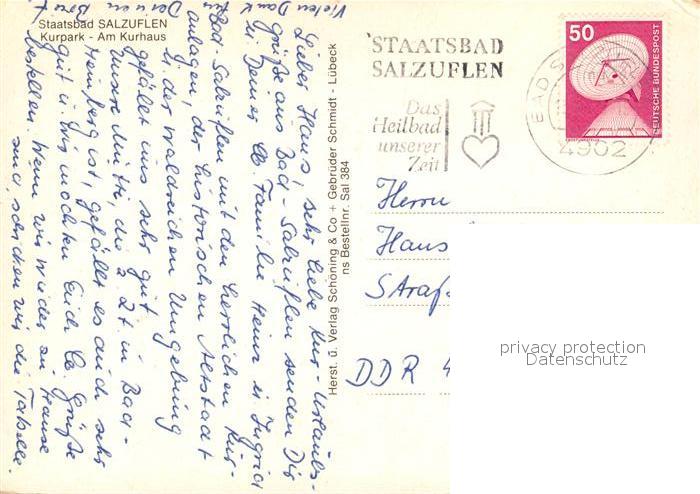 Staatsbad SALZUFLEN
Kurpark - Am Kurhaus
Vielen Dank für
Deinen Brief.
Lieber Hans, sehr liebe Kur-Urlaubs-
grüße aus Bad-Salzuflen senden Dir
u. Deiner lb. Familie Heinz u. Ingrid
Bad Salzuflen mit den herrlichen Kur-
anlagen, der historischen Altstadt
u. der waldreichen Umgebung
gefällt uns sehr gut.
Unsere Mutti, die z. Zt. in Bad-
Meinberg ist, gefällt es auch sehr
gut u. wir möchten Euch lb. Grüße
bestellen. Wenn wir wieder zu Hause
sind, schicken wir die Tabelle.
Herst. ü. Verlag Schöning & Co + Gebrüder Schmidt - Lübeck
ns Bestellnr. Sal 384
STAATSBAD
SALZUFLEN
Das
Heilbad
unserer
Zeit
BAD S
4902
50
DEUTSCHE BUNDESPOST
Herrn
Hans
Straß
DDR 4
privacy protection
Datenschutz